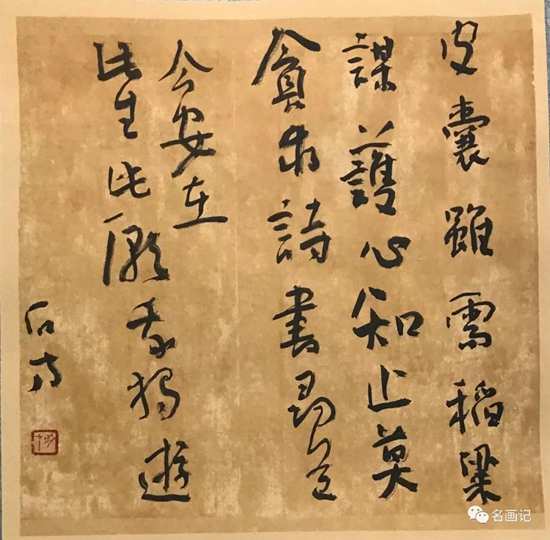 皮囊雖需稻粱
謀護心知止莫
貪求詩書尋道
今安在
此生此願我獨遊
名画记